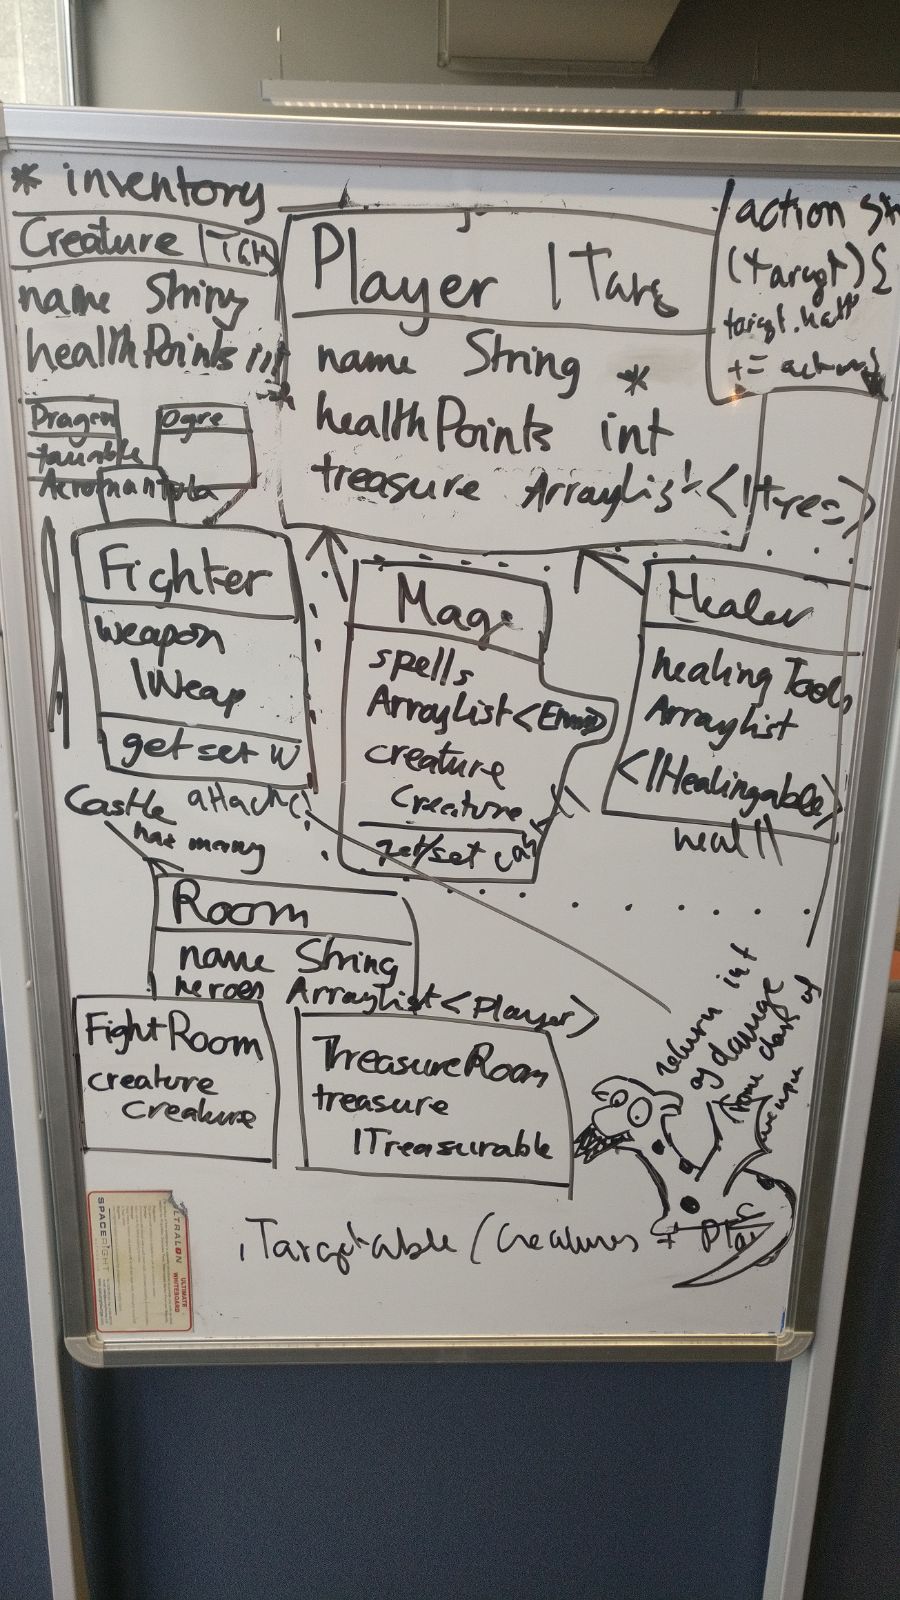 * inventory
Creature | ITarg
name String
healthPoints int
Dragon
Ogre
Player | ITarg
name String *
healthPoints int
treasure ArrayList <ITreas>
action
(target) {
target.health
+=
Fighter
weapon
IWeap
get set W
attack()
Mage
spells
ArrayList <Enum>
creature
Creature
get/set
Healer
healing Tools
ArrayList
<IHealingable>
heal()
Castle
has many
Room
name String
heroes ArrayList <Player>
FightRoom
creature
Creature
TreasureRoom
treasure
ITreasurable
return int
of damage
from
weapon
ITargetable (Creatures +
ULTRALON
ULTIMATE
WHITEBOARD
SPACERIGHT